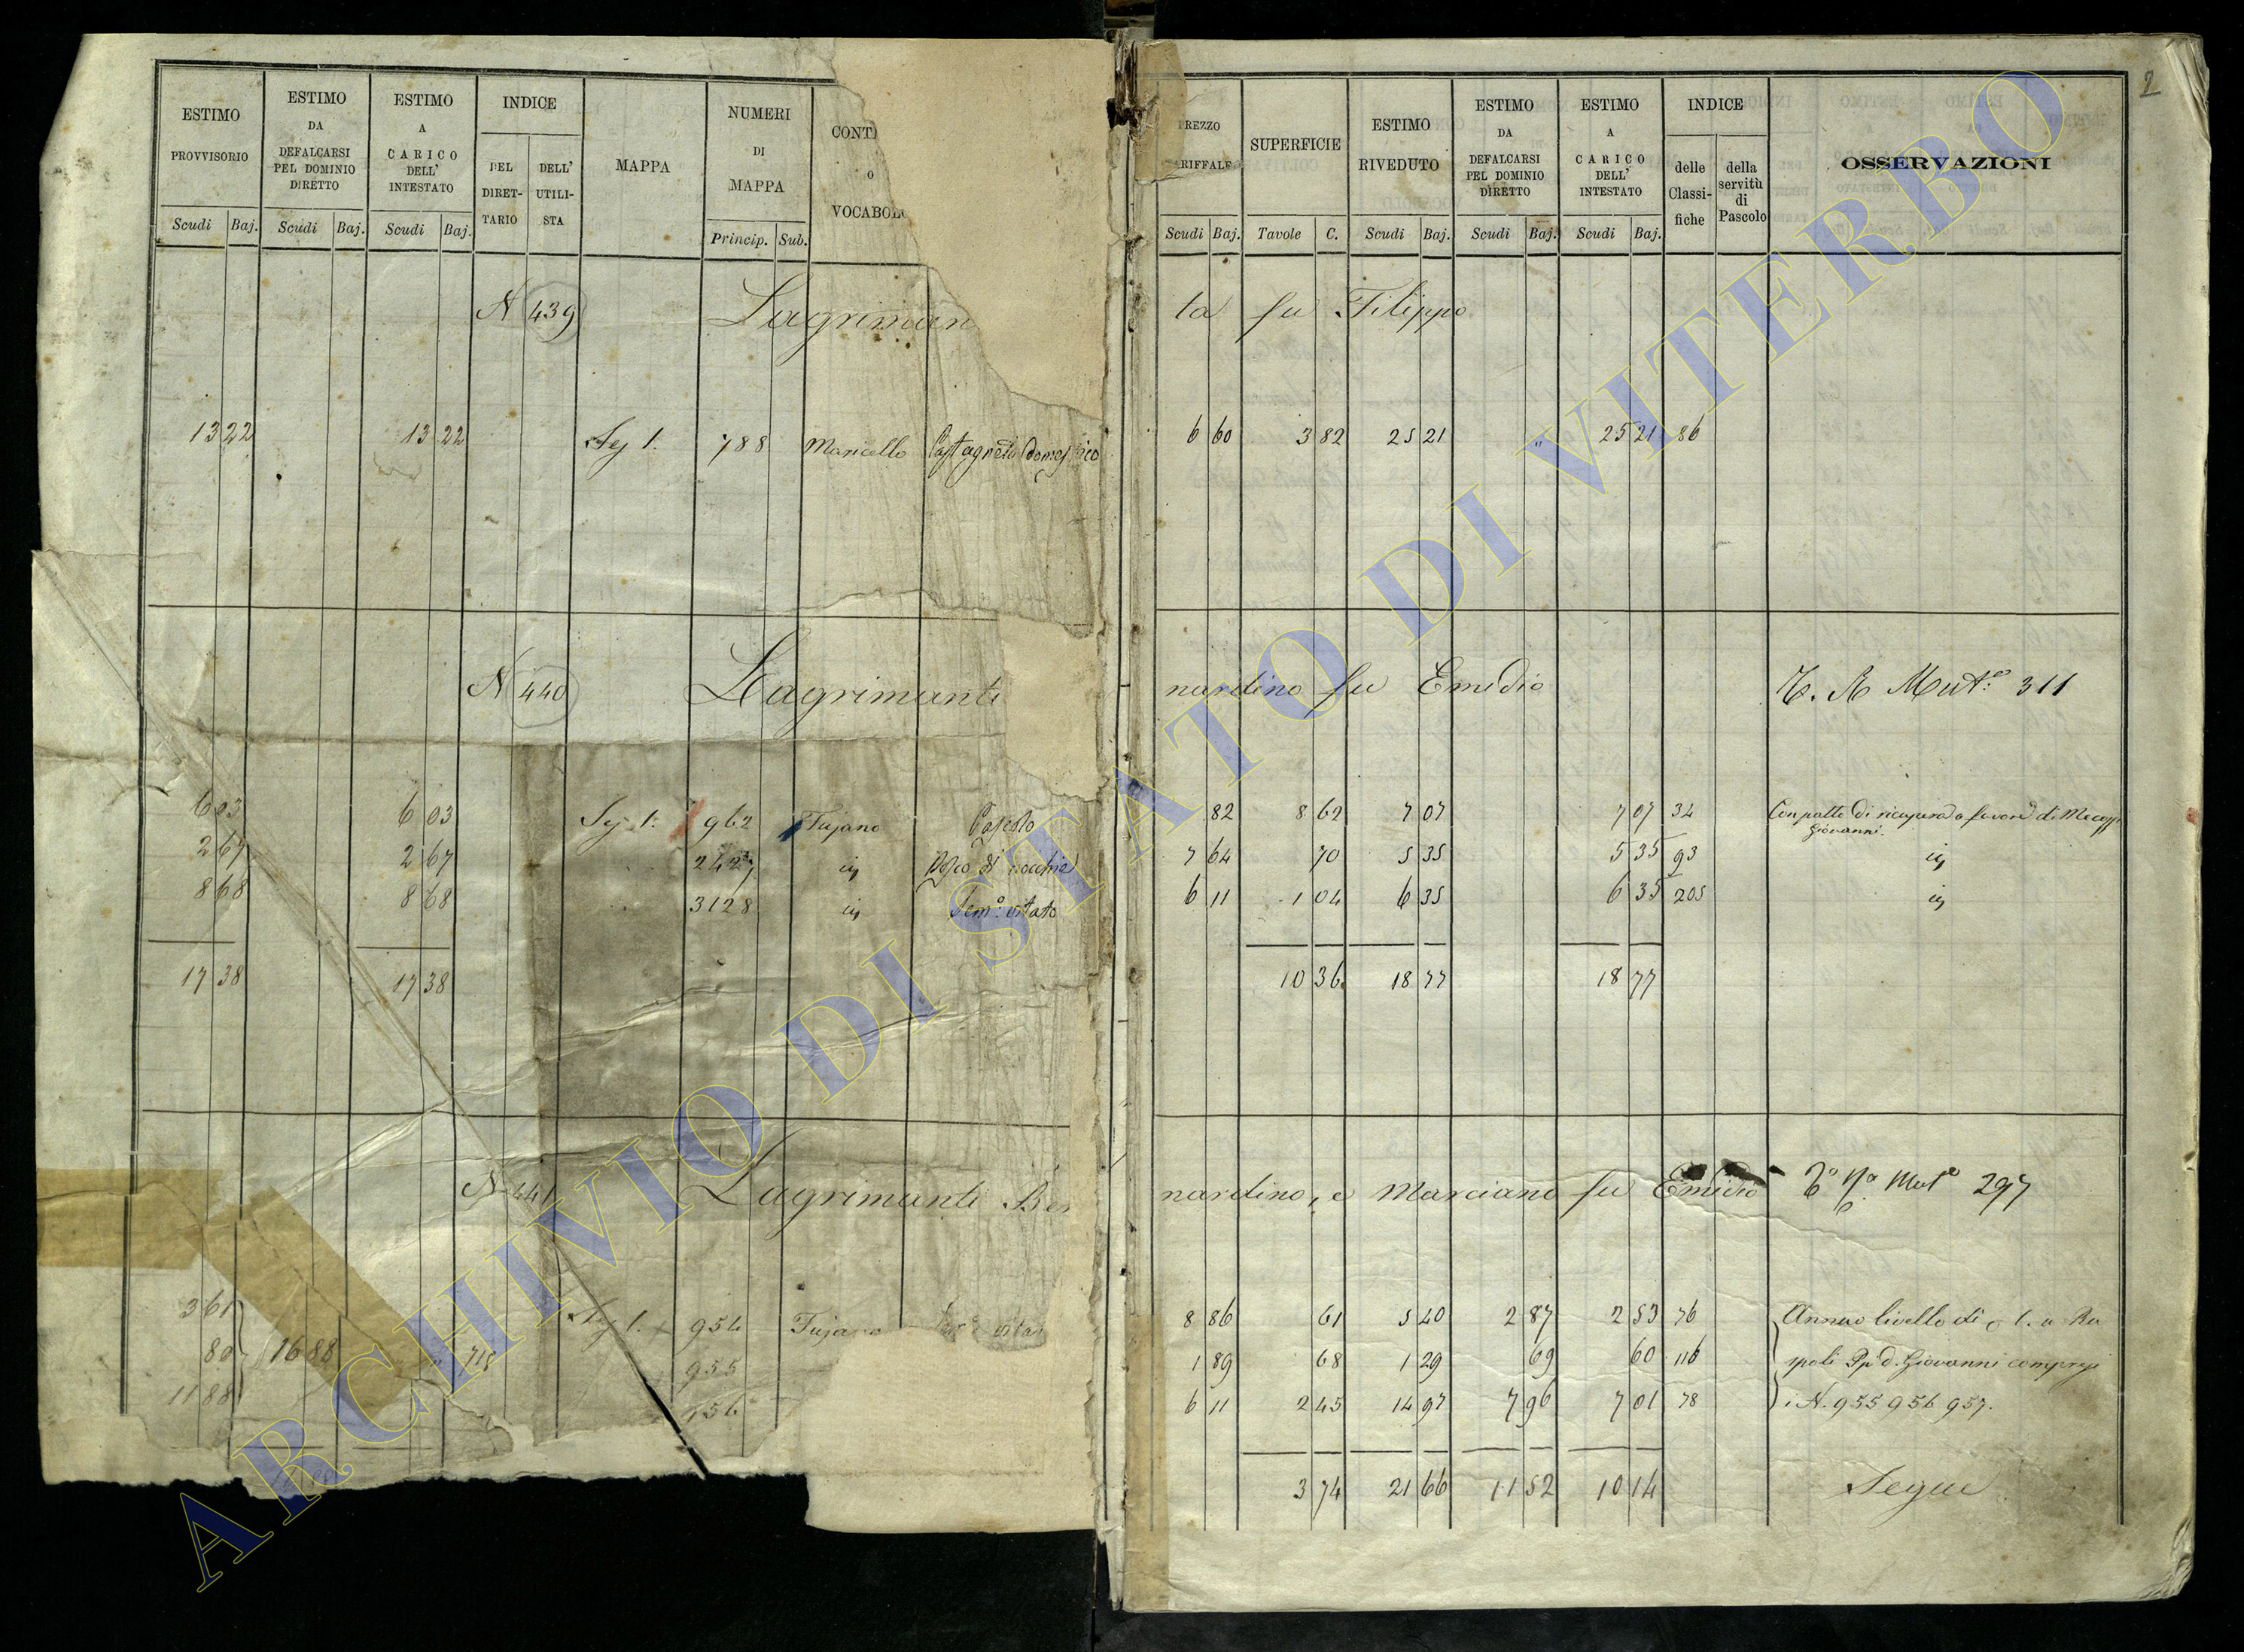 2
ESTIMO PROVVISORIO
ESTIMO DA DEFALCARSI PEL DOMINIO DIRETTO
ESTIMO A CARICO DELL' INTESTATO
INDICE
DEL DIRETTARIO
DELL' UTILISTA
MAPPA
NUMERI DI MAPPA
CONT
O
VOCABOL
Scudi Baj. Scudi Baj. Scudi Baj. Princip. Sub.
PREZZO
SUPERFICIE
ESTIMO RIVEDUTO
ESTIMO DA DEFALCARSI PEL DOMINIO DIRETTO
ESTIMO A CARICO DELL' INTESTATO
INDICE
delle Classifiche
della servitù di Pascolo
OSSERVAZIONI
Scudi Baj. Tavole C. Scudi Baj. Scudi Baj. Scudi Baj.
N 439 Lagriman ta fu Filippo
13 22 13 22 Sez 1. 788 Maricello Castagneto domestico 6 60 3 82 25 21 " 25 21 86
N 440 Lagrimanti nardino fu Emidio Mut.e 311
6 03 6 03 Sez 1. 962 Fujano Pascolo 82 8 62 7 07 7 07 34 Con patto di ricupera a favore di
Giovanni.
2 67 2 67 2427 7 64 70 5 35 5 35 93
8 68 8 68 3128 Sem.o vitato 6 11 1 04 6 35 6 35 205
17 38 17 38 10 36 18 77 18 77
N 441 Lagrimanti Ber nardino, e Marciano fu Emidio Mut.e 297
3 61 Sez 1. 954 Fujano 8 86 61 5 40 2 87 2 53 76 Annuo livello di 1. a Ru
80 16 88 " 718 955 1 89 68 1 29 69 60 116 spoli Giovanni compresi
11 88 956 6 11 2 45 14 97 7 96 7 01 78 i N. 955 956 957.
3 74 21 66 11 52 10 14 Segue
ARCHIVIO DI STATO DI VITERBO